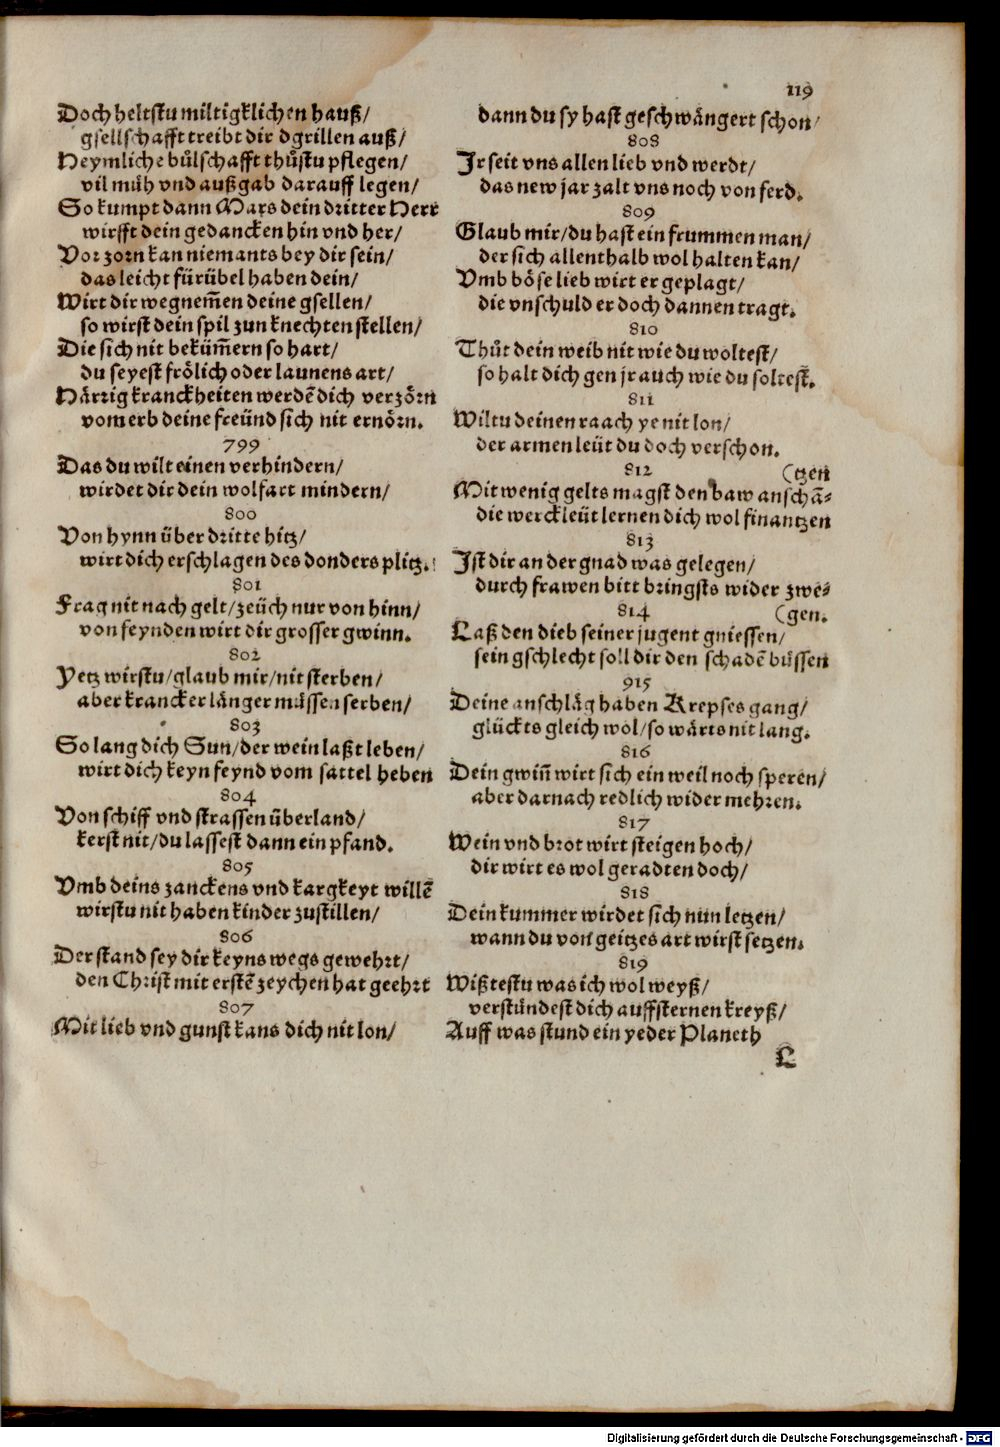 119
Doch heltstu miltigklichen hauß/
gsellschafft treibt dir dgrillen auß/
Heymliche bůlschafft thůstu pflegen/
vil můh vnd außgab darauff legen/
So kumpt dann Mars dein dritter Herr
wirfft dein gedancken hin vnd her/
Vor zorn kan niemants bey dir sein/
das leicht fürübel haben dein/
Wirt dir wegnem̃en deine gsellen/
so wirst dein spil zun knechten stellen/
Die sich nit beküm̃ern so hart/
du seyest frölich oder launens art/
Närrig kranckheiten werdẽ dich verzörn
vom erb deine freünd sich nit ernörn.
799
Das du wilt einen verhindern/
wirdet dir dein wolfart mindern/
800
Von hynn über dritte hitz/
wirt dich erschlagen des donders plitz.
801
Frag nit nach gelt/zeüch nur von hinn/
von feynden wirt dir grosser gwinn.
802
Yetz wirstu/glaub mir/nit sterben/
aber krancker länger müssen serben/
803
So lang dich Sun/der wein laßt leben/
wirt dich keyn feynd vom sattel heben
804
Von schiff vnd strassen überland/
kerst nit/du lassest dann ein pfand.
805
Vmb deins zanckens vnd kargkeyt willẽ
wirstu nit haben kinder zustillen/
806
Der stand sey dir keyns wegs gewehrt/
den Christ mit erstẽ zeychen hat geehrt
807
Mit lieb vnd gunst kans dich nit lon/
dann du sy hast geschwängert schon/
808
Jr seit vns allen lieb vnd werdt/
das new jar zalt vns noch von ferd.
809
Glaub mir/du hast ein frummen man/
der sich allenthalb wol halten kan/
Vmb böse lieb wirt er geplagt/
die vnschuld er doch dannen tragt.
810
Thůt dein weib nit wie du woltest/
so halt dich gen jr auch wie du soltest̃.
811
Wiltu deinen raach ye nit lon/
der armen leüt du doch verschon.
812 (tzen
Mit wenig gelts magst den baw anschã-
die werckleüt lernen dich wol finantzen
813
Jst dir an der gnad was gelegen/
durch frawen bitt bringsts wider zwe-
814 (gen.
Laß den dieb seiner jugent gniessen/
sein gschlecht soll dir den schadẽ büssen
915
Deine anschläg haben Krepses gang/
glückts gleich wol/so wärts nit lang.
816
Dein gwiñ wirt sich ein weil noch speren/
aber darnach redlich wider mehren.
817
Wein vnd brot wirt steigen hoch/
dir wirt es wol geradten doch/
818
Dein kummer wirdet sich nun letzen/
wann du von geitzes art wirst setzen.
819
Wißtestu was ich wol weyß/
verstündest dich auff sternen kreyß/
Auff was stund ein yeder Planeth
L
Digitalisierung gefördert durch die Deutsche Forschungsgemeinschaft - DFG